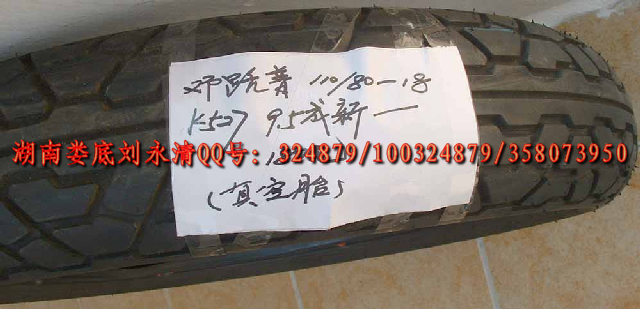 邓路普 110/80-18
K527 95成新一
湖南娄底刘永清QQ号：324879/100324879/358073950
(真空胎)